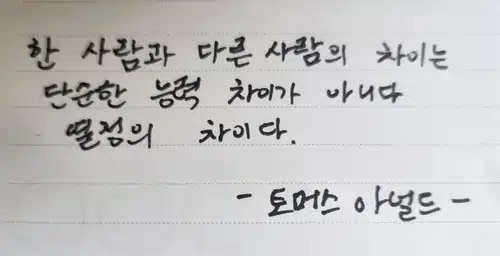 한 사람과 다른 사람의 차이는
단순한 능력 차이가 아니다
열정의 차이다.
- 토머스 아널드 -